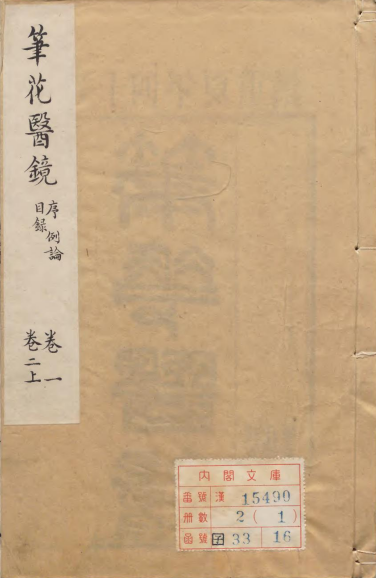 筆花醫鏡
序例論
目録
卷一
卷二上
内閣文庫
番號 漢 15490
册數 2 ( 1 )
函號 33 16